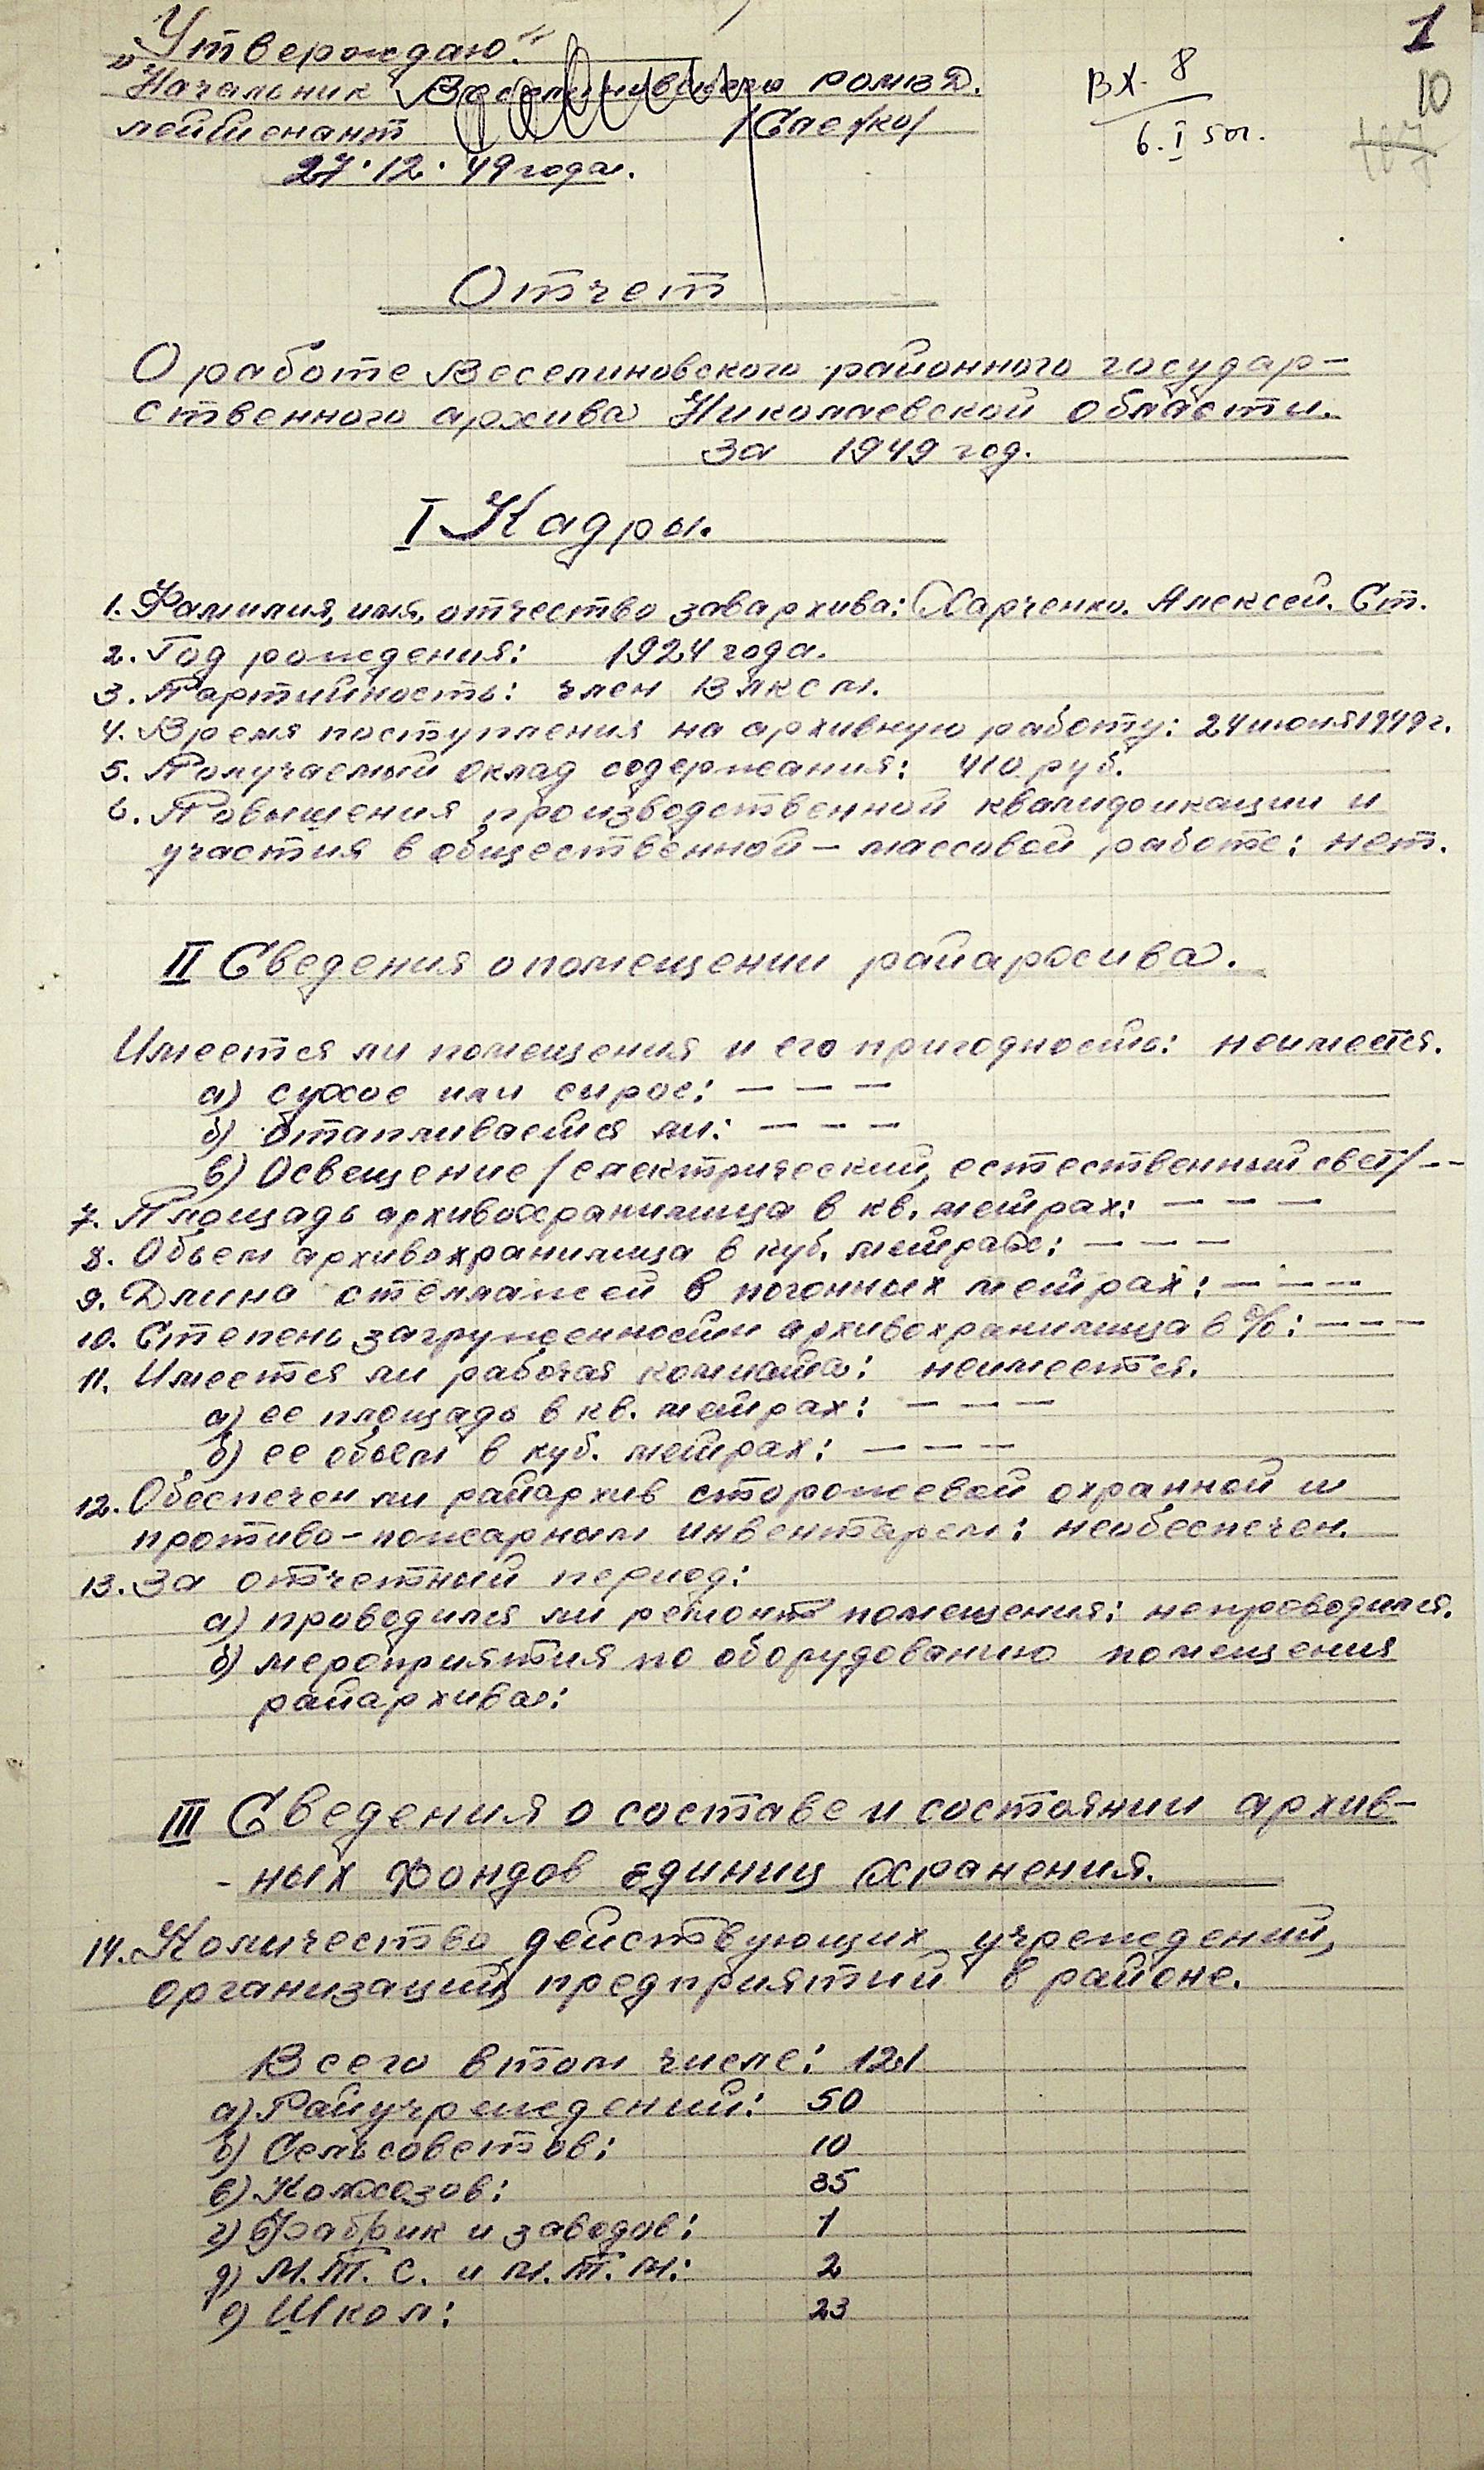 1
10
107
„Утверждаю“
Начальник Веселиновского РОМВД.
лейтенант /Спечко/
27.12.49 года.
ВХ. 8
6.I 50г.
Отчет
О работе Веселиновского районного государ-
ственного архива Николаевской области.
за 1949 год.
I Кадры.
1. Фамилия, имя, отчество завархива: Харченко. Алексей. Ст.
2. Год рождения: 1924 года.
3. Партийность: член ВЛКСМ.
4. Время поступления на архивную работу: 24 июня 1949 г.
5. Получаемый оклад содержания: 410 руб.
6. Повышения производственной квалификации и
участия в общественной – массовой работе: нет.
II Сведения о помещении райархива.
Имеется ли помещения и его пригодность: неимеется.
а) сухое или сырое: – – –
б) Отапливается ли: – – –
в) Освещение /електрический, естественный свет/ – –
7. Площадь архивохранилища в кв. метрах: – – –
8. Обьем архивохранилища в куб. метрах: – – –
9. Длина стеллажей в погонных метрах: – – –
10. Степень загруженности архивохранилища в %: – – –
11. Имеется ли рабочая комната: неимеется.
а) ее площадь в кв. метрах: – – –
б) ее обьем в куб. метрах: – – –
12. Обеспечен ли райархив сторожевой охранной и
противо-пожарным инвентарем: необеспечен.
13. За отчетный период:
а) проводился ли ремонт помещения: непроводился.
б) мероприятия по оборудованию помещения
райархива:
III Сведения о составе и состоянии архив-
-ных фондов единиц хранения.
14. Количество действующих учреждений,
организаций, предприятий в районе.
Всего в том числе: 121
а) Райучреждений: 50
б) Сельсоветов: 10
в) Колхозов: 35
г) Фабрик и заводов: 1
д) М.Т.С. и М.Т.М: 2
е) Школ: 23